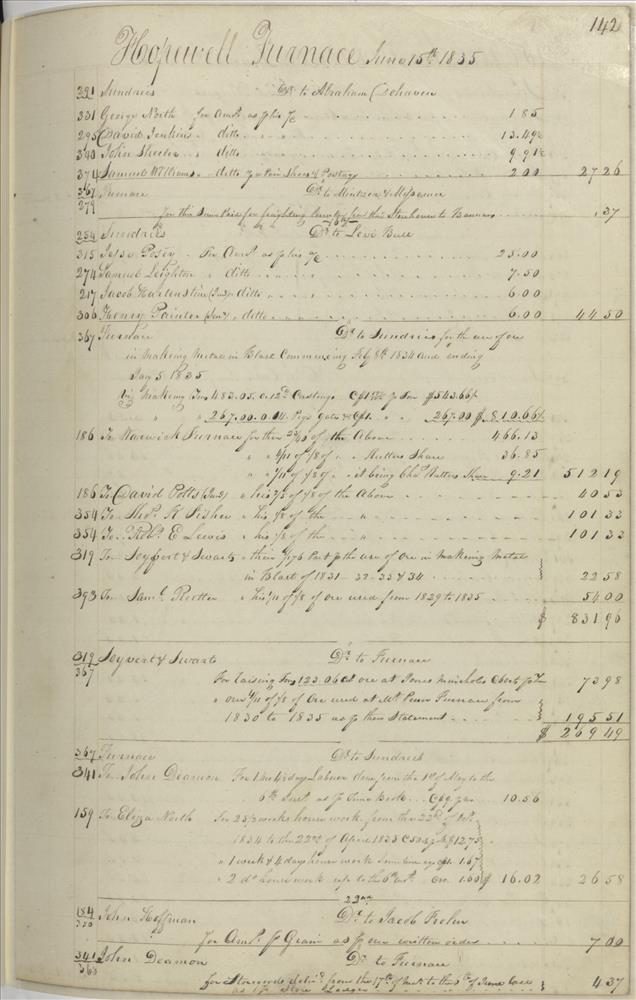 142
Hopewell Furnace June 15th 1835
391 Sundries Dr to Abraham Dehaven
331 George North for Amt. as p his 1.85
295 David Jenkins " ditto 13.49½
340 John Sheeler " ditto 9.91½
374 Samuel Williams " ditto pair Shoes & Postage 2.00 27 26
367 Furnace Dr to
279
for this Sum Paid for freighting from Stonehouse to .37
254 Sundries Dr to Levi Bull
315 Jesse Posey For Amt. as p his 25.00
274 Samuel Leighton " ditto 7.50
217 Jacob Hartenstine (Jun) " ditto 6.00
306 Henry Painter (Sen) " ditto 6.00 44 50
367 Furnace Dr to Sundries for the use of ore
in making Metal in Blast Commencing Feby 8th 1834 and ending
Jany 5 1835
viz Making Tons 483.05.0.12 Castings p Ton $543.66½
" " 267.00.0.14 Pigs Gates & C $1 " 267.00 $810.66½
186 To Warwick Furnace for their of the Above 466.13
" " 4/11 of 1/8 of " Rutters Share 36.85
" " 1/11 of 1/8 of " it being Chas Rutters Share 9.21 512 19
186 To David Potts (Jun) " his ½ of 1/8 of the Above 40 53
354 To Thos. R Fisher " his 1/8 of the " 101 33
354 To Robt. E Lewis " his 1/8 of the " 101 33
319 To Seyfert & Swartz " their 1/176 Part p the use of Ore in making Metal
in Blast of 1831 - 32 - 33 & 34 22 58
393 To Saml. Rutter " his 1/11 of 1/8 of ore used from 1829 to 1835 54 00
$ 831 96
319 Seyvert & Swartz Dr to Furnace
367 For Raising Tons 123.06 of ore at Jones p Ton 73 98
" our 4/11 of 1/8 of Ore used at Mt Penn Furnace from
1830 to 1835 as p their Statement 195 51
$ 269 49
367 Furnace Dr to Sundries
341 To John Deamon For 1 mo 4½ days Labour done from the 1st of May to the
6th Inst. as p Time Book 10.56
159 To Eliza North for 25½ weeks house work from the 22d of Oct.
1834 to the 22nd of April 1835 $12.75
" 1 week & 4 days house work 1.67
" 2 do house work up to the 6th Inst. 1.60 $ 16.02 26 58
22nd
184 John Hoffman Dr to Jacob
330 for Amt. p Grain as p our written order 7 00
341 John Deamon Dr to Furnace
360 for Storegoods deliv'd from the 17th of to the 5th of June last
as p Store Ledger 4 37